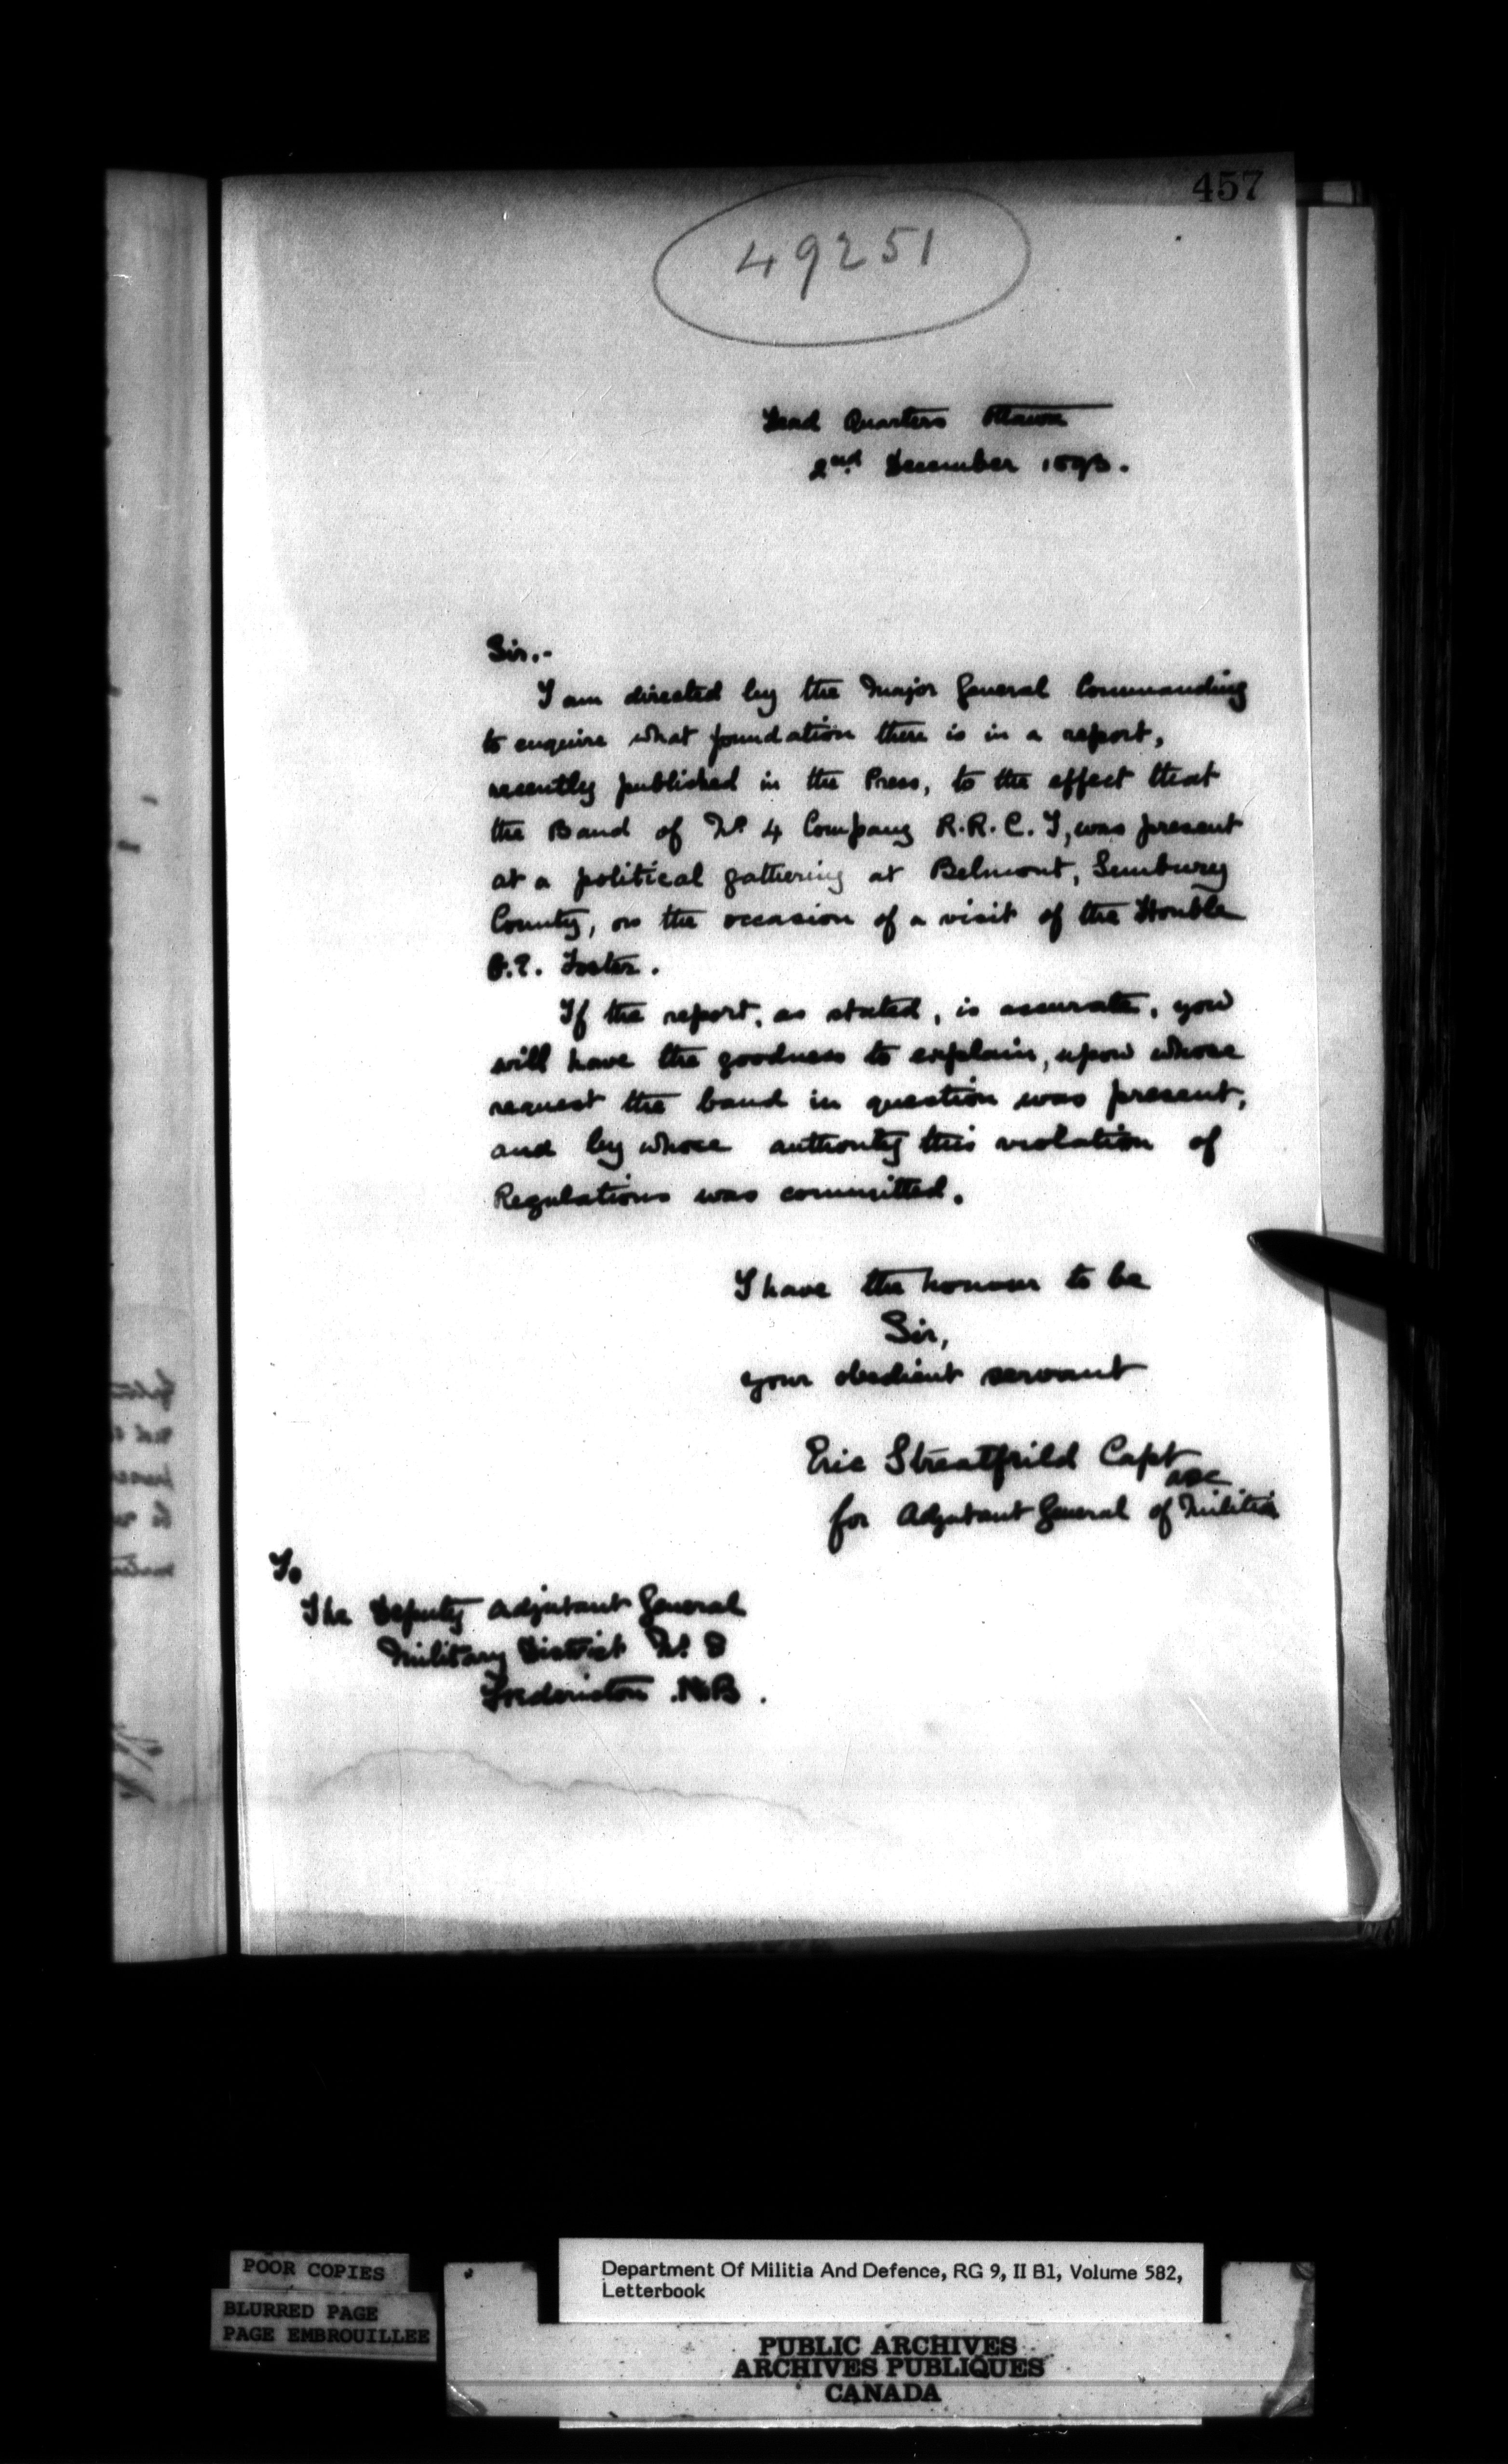 457
49251
Head Quarters Ottawa
2nd December 1893.
Sir,-
I am directed by the Major General Commanding
to enquire what foundation there is in a report,
recently published in the Press, to the effect that
the Band of No 4 Company R.R.C.I, was present
at a political gathering at Belmont, Sunbury
County, on the occasion of a visit of the Honble
G.E. Foster.
If the report, as stated, is accurate, you
will have the goodness to explain, upon whose
request the band in question was present,
and by whose authority this violation of
Regulations was committed.
I have the honour to be
Sir,
your obedient servant
Eric Streatfeild Capt
ADC
for Adjutant General of Militia
To
The Deputy Adjutant General
Military District No. 8
Fredericton .N.B.
POOR COPIES
BLURRED PAGE
PAGE EMBROUILLEE
Department Of Militia And Defence, RG 9, II B1, Volume 582,
Letterbook
PUBLIC ARCHIVES
ARCHIVES PUBLIQUES
CANADA